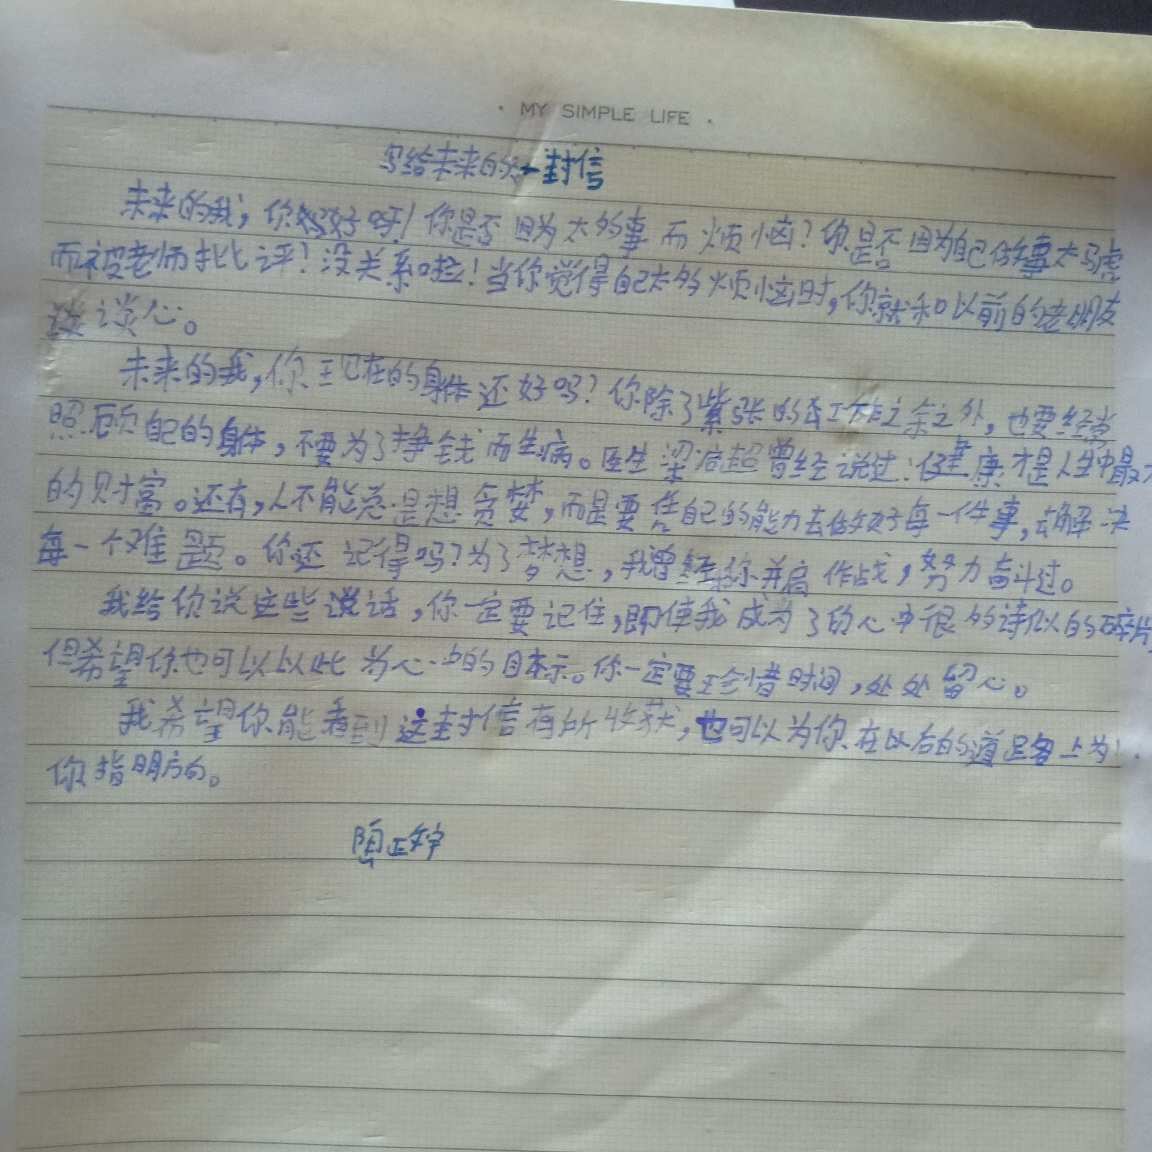 · MY SIMPLE LIFE ·
写给未来的 一封信
未来的我，你好呀！你是否因为太多的事而烦恼？你是否因为自己做事太马虎
而被老师批评？没关系啦！当你觉得自己太多烦恼时，你就和以前的老朋友
谈心。
未来的我，你现在的身体还好吗？你除了紧张的工作之余之外，也要经常
照顾自己的身体，不要为了挣钱而生病。医生梁启超曾经说过：健康才是人生中最大
的财富。还有，人不能总是想贪婪，而是要 自己的能力去做好每一件事，去解决
每一个难题。你还记得吗？为了梦想，我曾经和你并肩作战，努力奋斗过。
我给你说这些话，你一定要记住，即使我成为了的心中很多诗似的碎片，
但希望你也可以以此为心中的目标。你一定要珍惜时间，处处留心。
我希望你能看到这封信有所收获，也可以为你在以后的道路上为
你指明方向。
陶正